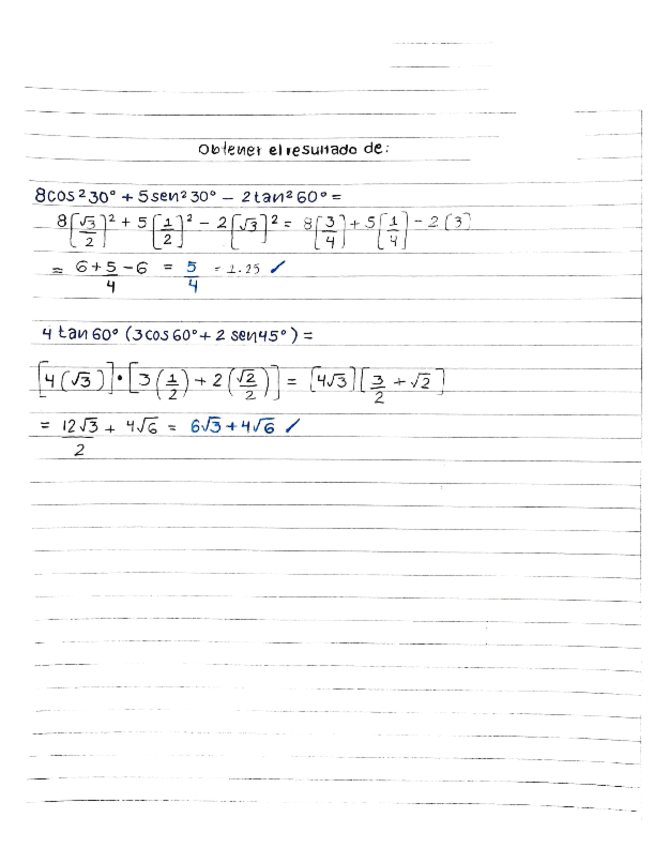 Obtener el resultado de:
8cos²30° + 5sen²30° − 2tan²60° =
8[√3/2]² + 5[1/2]² − 2[√3]² = 8[3/4] + 5[1/4] − 2(3)
= 6 + 5/4 − 6 = 5/4 = 1.25 /
4 tan60° (3cos60° + 2 sen45°) =
[4(√3)]•[3(1/2) + 2(√2/2)] = [4√3][3/2 + √2]
= 12√3/2 + 4√6 = 6√3 + 4√6 /